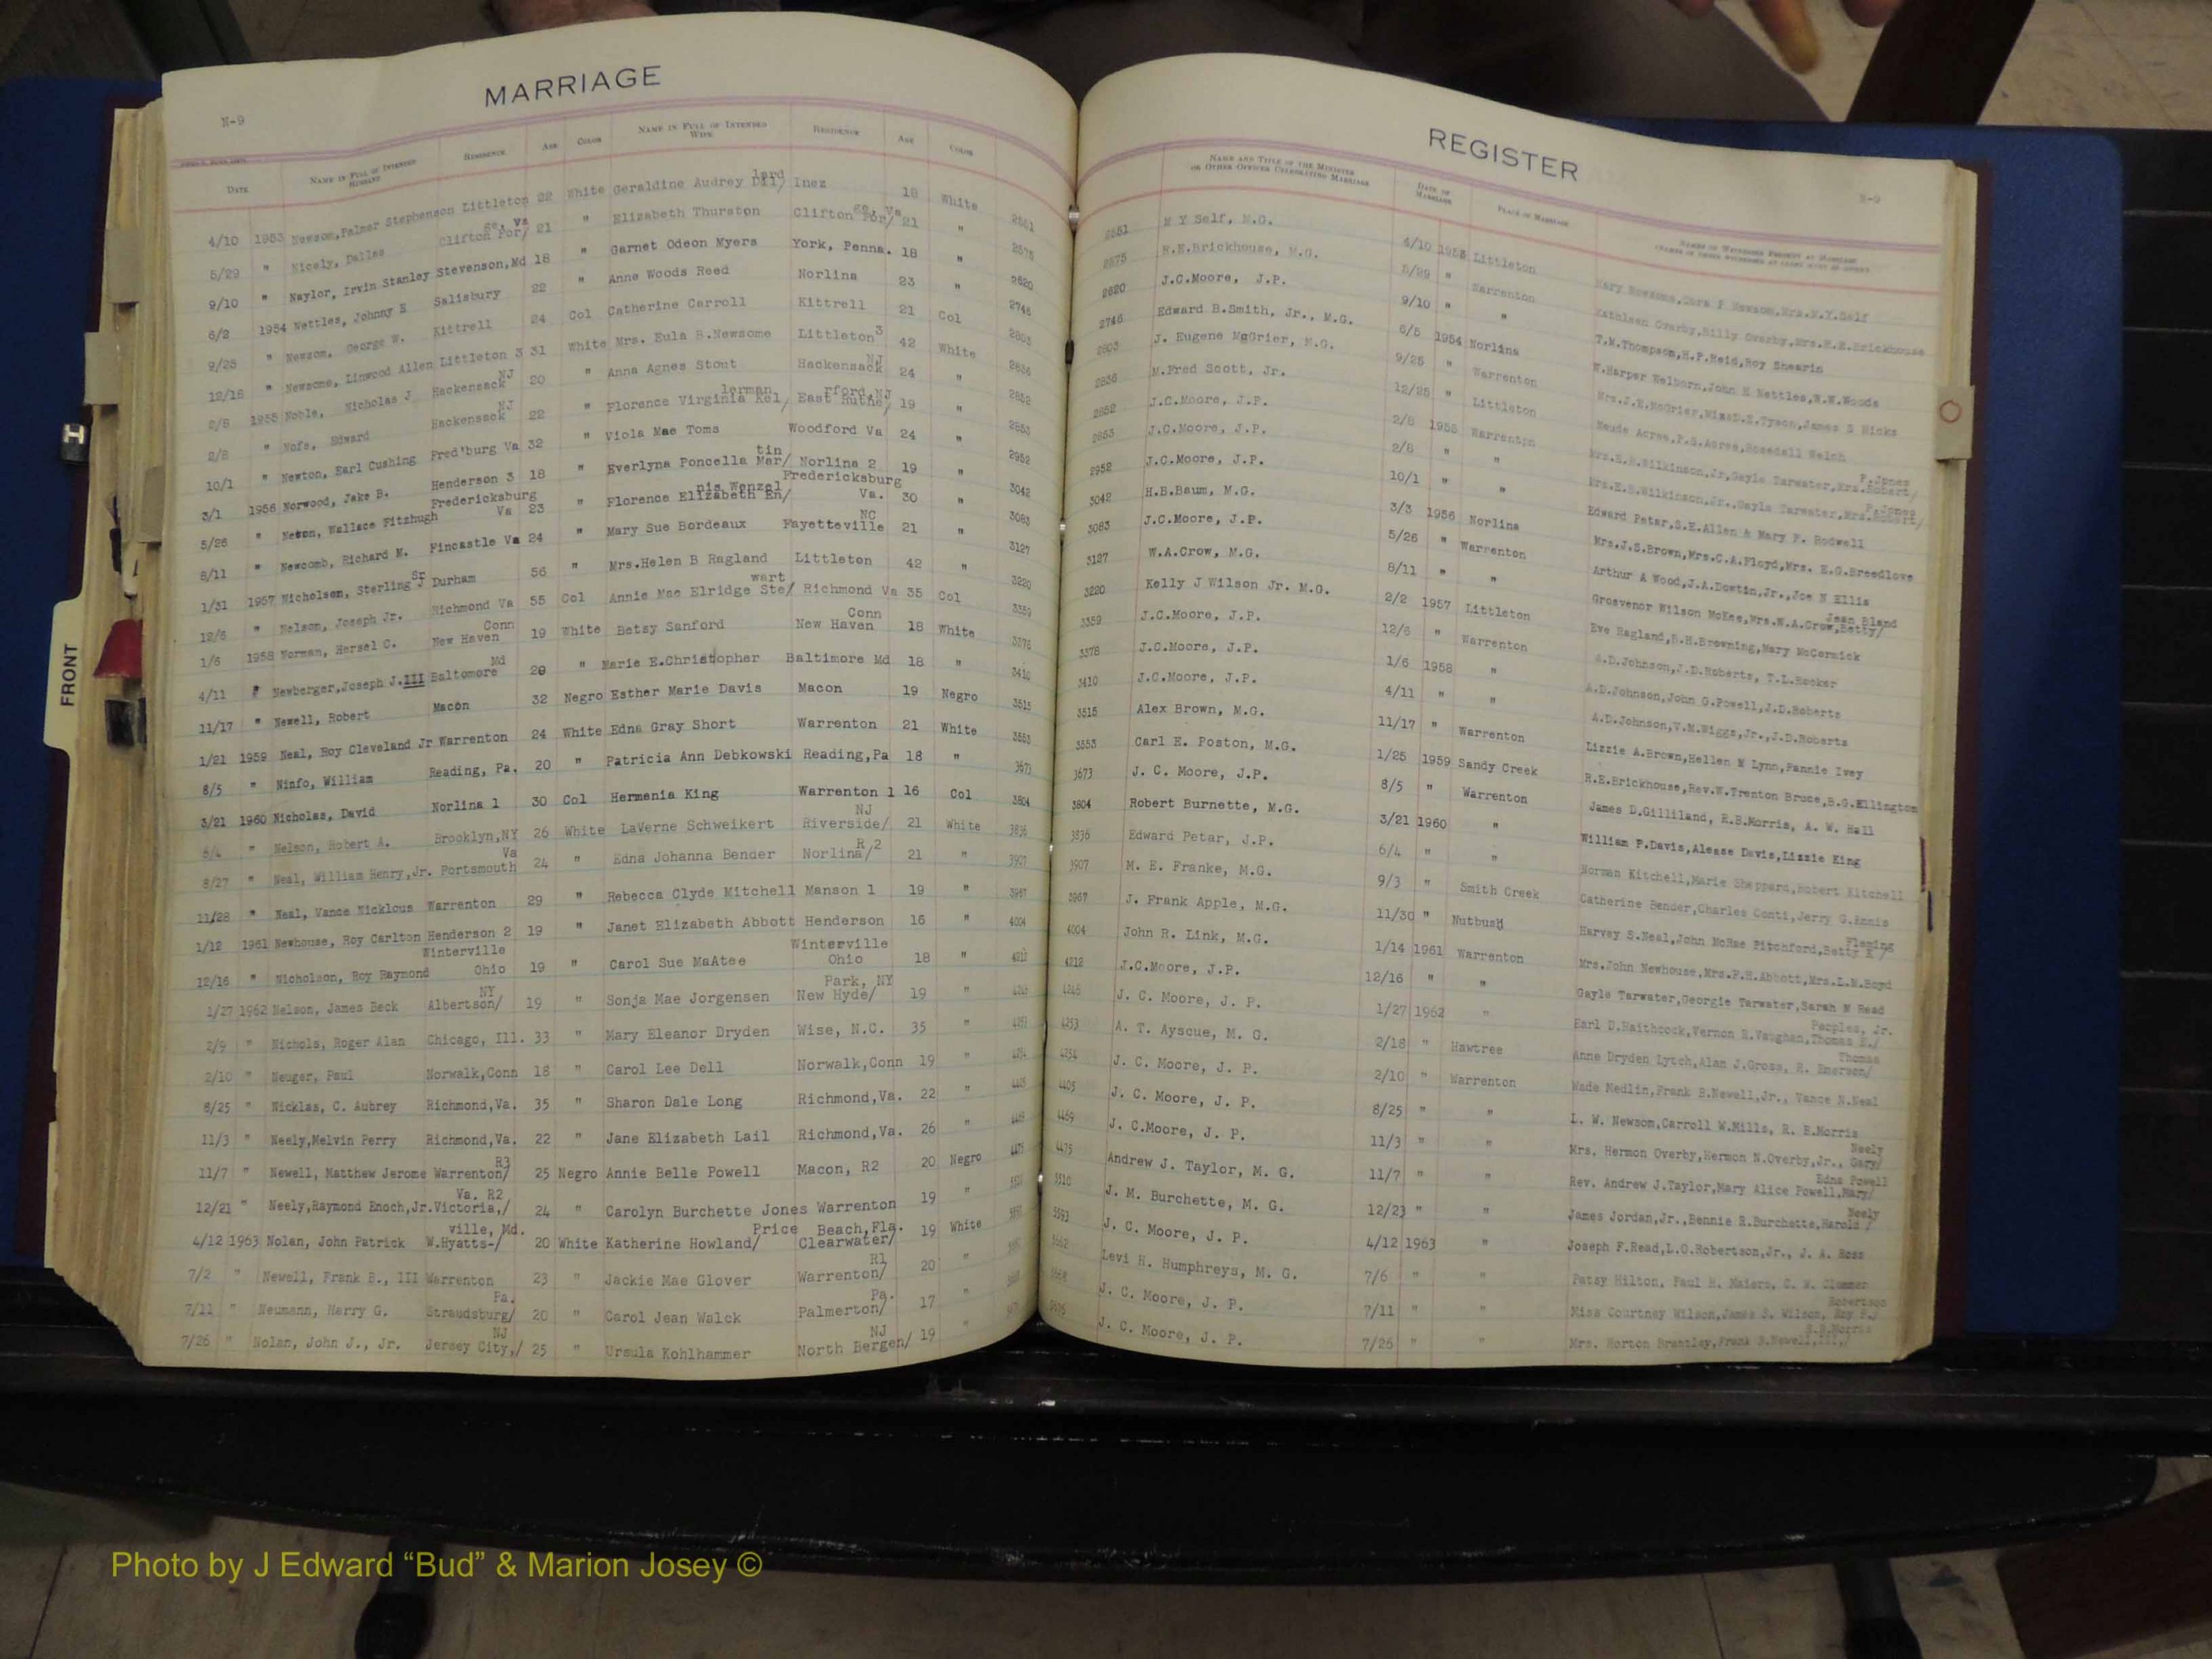 MARRIAGE
N-9
DATE NAME IN FULL OF INTENDED HUSBAND RESIDENCE AGE COLOR NAME IN FULL OF INTENDED WIFE RESIDENCE AGE COLOR
4/10 1953 Newsom,Palmer Stephenson Littleton 22 White Geraldine Audrey Dil/lard Inez 18 White 2551
5/29 " Nicely, Dallas Clifton For/ge, Va 21 " Elizabeth Thurston Clifton For/ge, Va 21 " 2575
9/10 " Naylor, Irvin Stanley Stevenson,Md 18 " Garnet Odeon Myers York, Penna. 18 " 2620
6/2 1954 Nettles, Johnny E Salisbury 22 " Anne Woods Reed Norlina 23 " 2746
9/25 " Newsom, George W. Kittrell 24 Col Catherine Carroll Kittrell 21 Col 2803
12/18 " Newsome, Linwood Allen Littleton 3 31 White Mrs. Eula B.Newsome Littleton 3 42 White 2836
2/8 1955 Noble, Nicholas J Hackensack NJ 20 " Anna Agnes Stout Hackensack NJ 24 " 2852
2/8 " Nofs, Edward Hackensack NJ 22 " Florence Virginia Kel/lerman East Ruthe/rford,NJ 19 " 2853
10/1 " Newton, Earl Cushing Fred'burg Va 32 " Viola Mae Toms Woodford Va 24 " 2952
3/1 1956 Norwood, Jake B. Henderson 3 18 " Everlyna Poncella Mar/tin Norlina 2 19 " 3042
5/26 " Neton, Wallace Fitzhugh Fredericksburg Va 23 " Florence Elizabeth En/nis Wenzel Fredericksburg Va. 30 " 3083
8/11 " Newcomb, Richard M. Fincastle Va 24 " Mary Sue Bordeaux Fayetteville NC 21 " 3127
1/31 1957 Nicholson, Sterling J Sr Durham 56 " Mrs.Helen B Ragland Littleton 42 " 3220
12/6 " Nelson, Joseph Jr. Richmond Va 55 Col Annie Mae Elridge Ste/wart Richmond Va 35 Col 3359
1/6 1958 Norman, Hersel C. New Haven Conn 19 White Betsy Sanford New Haven Conn 18 White 3378
4/11 " Newberger,Joseph J.III Baltomore Md 20 " Marie E.Christopher Baltimore Md 18 " 3410
11/17 " Newell, Robert Macon 32 Negro Esther Marie Davis Macon 19 Negro 3515
1/21 1959 Neal, Roy Cleveland Jr Warrenton 24 White Edna Gray Short Warrenton 21 White 3553
8/5 " Ninfo, William Reading, Pa. 20 " Patricia Ann Debkowski Reading,Pa 18 " 3673
3/21 1960 Nicholas, David Norlina 1 30 Col Hermenia King Warrenton 1 16 Col 3804
6/4 " Nelson, Robert A. Brooklyn,NY 26 White LaVerne Schweikert Riverside/ NJ 21 White 3836
8/27 " Neal, William Henry,Jr. Portsmouth Va 24 " Edna Johanna Bender Norlina/ R 2 21 " 3907
11/28 " Neal, Vance Nicklous Warrenton 29 " Rebecca Clyde Mitchell Manson 1 19 " 3967
1/12 1961 Newhouse, Roy Carlton Henderson 2 19 " Janet Elizabeth Abbott Henderson 16 " 4004
12/16 " Nicholson, Roy Raymond Winterville Ohio 19 " Carol Sue MaAtee Winterville Ohio 18 " 4212
1/27 1962 Nelson, James Beck Albertson/ NY 19 " Sonja Mae Jorgensen New Hyde/ Park, NY 19 "
2/9 " Nichols, Roger Alan Chicago, Ill. 33 " Mary Eleanor Dryden Wise, N.C. 35 " 4253
2/10 " Neuger, Paul Norwalk,Conn 18 " Carol Lee Dell Norwalk,Conn 19 " 4254
8/25 " Nicklas, C. Aubrey Richmond,Va. 35 " Sharon Dale Long Richmond,Va. 22 " 4405
11/3 " Neely,Melvin Perry Richmond,Va. 22 " Jane Elizabeth Lail Richmond,Va. 26 " 4469
11/7 " Newell, Matthew Jerome Warrenton/ R3 25 Negro Annie Belle Powell Macon, R2 20 Negro 4475
12/21 " Neely,Raymond Enoch,Jr. Victoria,/ Va. R2 24 " Carolyn Burchette Jones Warrenton 19 "
4/12 1963 Nolan, John Patrick W.Hyatts-/ville, Md. 20 White Katherine Howland/ Price Clearwater/ Beach,Fla. 19 White
7/2 " Newell, Frank B., III Warrenton 23 " Jackie Mae Glover Warrenton/ R1 20 "
7/11 " Neumann, Harry G. Straudsburg/ Pa. 20 " Carol Jean Walck Palmerton/ Pa. 17 "
7/26 " Nolan, John J., Jr. Jersey City,/ NJ 25 " Ursula Kohlhammer North Bergen/ NJ 19 "
REGISTER
N-9
NAME AND TITLE OF THE MINISTER OR OTHER OFFICER CELEBRATING MARRIAGE DATE OF MARRIAGE PLACE OF MARRIAGE NAMES OF WITNESSES PRESENT AT MARRIAGE
2551 M Y Self, M.G. 4/10 1953 Littleton Mary Newsome,Cora P Newsom,Mrs.M.Y.Self
2575 R.E.Brickhouse, M.G. 5/29 " Warrenton Kathleen Overby,Billy Overby,Mrs.R.E.Brickhouse
2620 J.C.Moore, J.P. 9/10 " " T.M.Thompson,H.P.Reid,Roy Shearin
2746 Edward B.Smith, Jr., M.G. 6/5 1954 Norlina W.Harper Welborn,John H Nettles,R.W.Woods
2803 J. Eugene McGrier, M.G. 9/25 " Warrenton Mrs.J.E.McGrier,MissD.E.Tyson,James S Hicks
2836 M.Fred Scott, Jr. 12/25 " Littleton Maude Acree,P.S.Acree,Rosedell Welch
2852 J.C.Moore, J.P. 2/8 1955 Warrenton Mrs.E.E.Wilkinson,Jr,Gayle Tarwater,Mrs.Robert/ P.Jones
2853 J.C.Moore, J.P. 2/8 " " Mrs.E.E.Wilkinson,Jr.,Gayle Tarwater,Mrs.Robert/ P.Jones
2952 J.C.Moore, J.P. 10/1 " " Edward Petar,S.E.Allen & Mary F. Rodwell
3042 H.B.Baum, M.G. 3/3 1956 Norlina Mrs.J.S.Brown,Mrs.C.A.Floyd,Mrs. E.G.Breedlove
3083 J.C.Moore, J.P. 5/26 " Warrenton Arthur A Wood,J.A.Dowtin,Jr.,Joe N Ellis
3127 W.A.Crow, M.G. 8/11 " " Grosvenor Wilson McKee,Mrs.W.A.Crow,Betty/ Jean Bland
3220 Kelly J Wilson Jr. M.G. 2/2 1957 Littleton Eve Ragland,B.H.Browning,Mary McCormick
3359 J.C.Moore, J.P. 12/6 " Warrenton A.D.Johnson,J.D.Roberts, T.L.Rooker
3378 J.C.Moore, J.P. 1/6 1958 " A.D.Johnson,John G.Powell,J.D.Roberts
3410 J.C.Moore, J.P. 4/11 " " A.D.Johnson,V.M.Wiggs,Jr.,J.D.Roberts
3515 Alex Brown, M.G. 11/17 " Warrenton Lizzie A.Brown,Hellen M Lynn,Fannie Ivey
3553 Carl E. Poston, M.G. 1/25 1959 Sandy Creek R.E.Brickhouse,Rev.W.Trenton Bruce,B.G.Ellington
3673 J. C. Moore, J.P. 8/5 " Warrenton James D.Gilliland, R.B.Morris, A. W. Hall
3804 Robert Burnette, M.G. 3/21 1960 " William P.Davis,Alease Davis,Lizzie King
3836 Edward Petar, J.P. 6/4 " " Norman Kitchell,Marie Sheppard,Robert Kitchell
3907 M. E. Franke, M.G. 9/3 " Smith Creek Catherine Bender,Charles Conti,Jerry G.Ennis
3967 J. Frank Apple, M.G. 11/30 " Nutbush Harvey S.Neal,John McRae Pitchford,Betty K / Fleming
4004 John R. Link, M.G. 1/14 1961 Warrenton Mrs.John Newhouse,Mrs.P.H.Abbott,Mrs.L.N.Boyd
4212 J.C.Moore, J.P. 12/16 " " Gayle Tarwater,Georgie Tarwater,Sarah M Read
J. C. Moore, J. P. 1/27 1962 " Earl D.Haithcock,Vernon R.Vaughan,Thomas B./ Peoples, Jr.
4253 A. T. Ayscue, M. G. 2/18 " Hawtree Anne Dryden Lytch,Alan J.Gross, R. Emerson/ Thomas
4254 J. C. Moore, J. P. 2/10 " Warrenton Wade Medlin,Frank B.Newell,Jr., Vance N.Neal
4405 J. C. Moore, J. P. 8/25 " " L. W. Newsom,Carroll W.Mills, R. B.Morris
4469 J. C.Moore, J. P. 11/3 " " Mrs. Hermon Overby,Hermon N.Overby,Jr., Gary/ Neely
4475 Andrew J. Taylor, M. G. 11/7 " " Rev. Andrew J.Taylor,Mary Alice Powell,Mary/ Edna Powell
J. M. Burchette, M. G. 12/23 " " James Jordan,Jr.,Bennie R.Burchette,Harold / Neely
J. C. Moore, J. P. 4/12 1963 " Joseph F.Read,L.O.Robertson,Jr., J. A. Ross
Levi H. Humphreys, M. G. 7/6 " " Patsy Hilton, Paul H. Maiers, C. W.
J. C. Moore, J. P. 7/11 " " Miss Courtney Wilson,James S. Wilson, Roy F./ Robertson
J. C. Moore, J. P. 7/26 " " Mrs. Horton Brantley,Frank B.Newell,III,/
FRONT
Photo by J Edward “Bud” & Marion Josey ©